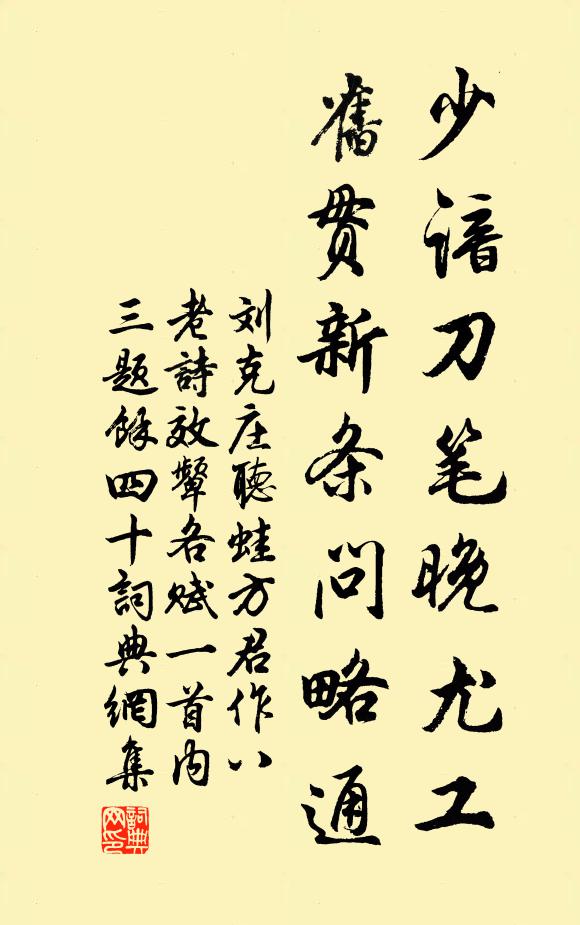 少谙刀笔晚尤工
舊贯新条问略通
刘克庄聽蛙方君作八
老詩效颦各赋一首内
三题餘四十詞典網集
詞典網印